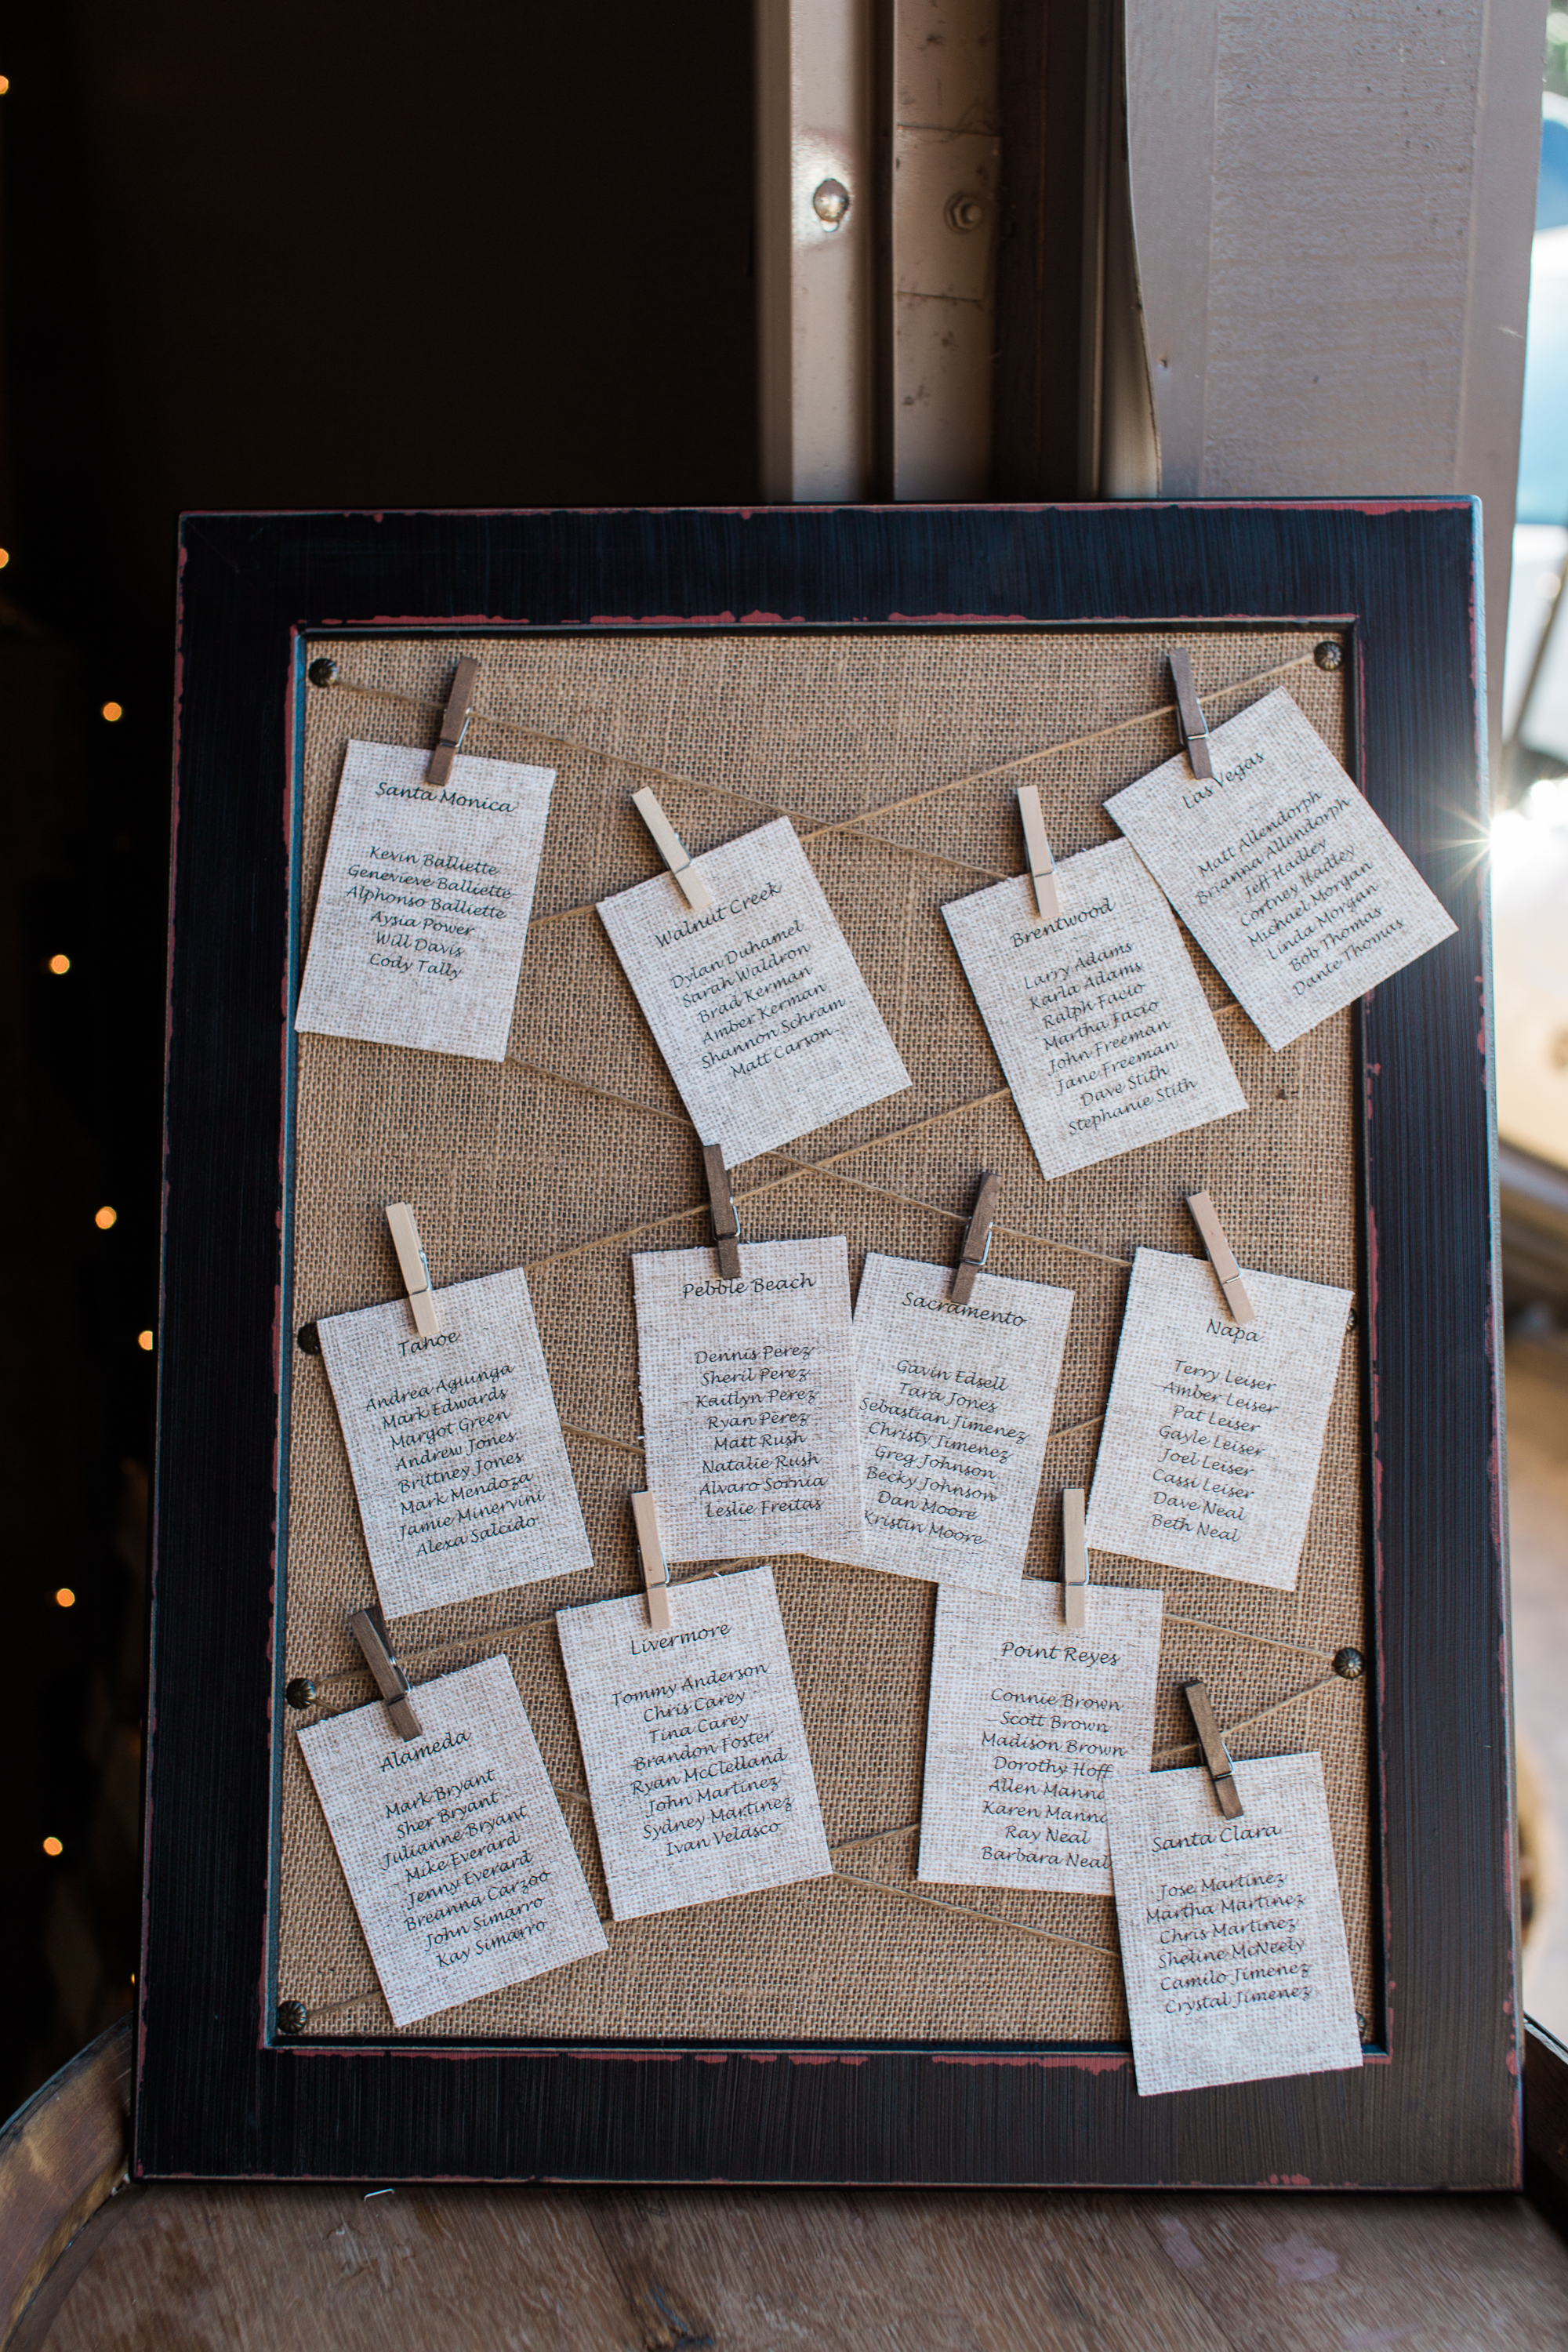 Santa Monica
Kevin Balliette
Genevieve Balliette
Alphonso Balliette
Aysia Power
Will Davis
Cody Tally
Walnut Creek
Dylan Duhamel
Sarah Waldron
Brad Kerman
Amber Kerman
Shannon Schram
Matt Carson
Brentwood
Larry Adams
Karla Adams
Ralph Facio
Martha Facio
John Freeman
Jane Freeman
Dave Stith
Stephanie Stith
Las Vegas
Matt Allendorph
Brianna Allendorph
Jeff Hadley
Cortney Hadley
Michael Morgan
Linda Morgan
Bob Thomas
Dante Thomas
Tahoe
Andrea Aguinga
Mark Edwards
Margot Green
Andrew Jones
Brittney Jones
Mark Mendoza
Jamie Minervini
Alexa Salcido
Pebble Beach
Dennis Perez
Sheril Perez
Kaitlyn Perez
Ryan Perez
Matt Rush
Natalie Rush
Alvaro Sornia
Leslie Freitas
Sacramento
Gavin Edsell
Tara Jones
Sebastian Jimenez
Christy Jimenez
Greg Johnson
Becky Johnson
Dan Moore
Kristin Moore
Napa
Terry Leiser
Amber Leiser
Pat Leiser
Gayle Leiser
Joel Leiser
Cassi Leiser
Dave Neal
Beth Neal
Alameda
Mark Bryant
Sher Bryant
Julianne Bryant
Mike Everard
Jenny Everard
Breanna Carzoo
John Simarro
Kay Simarro
Livermore
Tommy Anderson
Chris Carey
Tina Carey
Brandon Foster
Ryan McClelland
John Martinez
Sydney Martinez
Ivan Velasco
Point Reyes
Connie Brown
Scott Brown
Madison Brown
Dorothy Hoff
Allen Manna
Karen Manna
Ray Neal
Barbara Neal
Santa Clara
Jose Martinez
Martha Martinez
Chris Martinez
Sheline McNeely
Camilo Jimenez
Crystal Jimenez